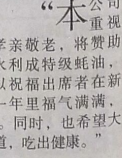 “本公司
重视
孝亲敬老，将赞助
永利成特级蚝油，
以祝福出席者在新
一年里福气满满，
。同时，也希望大
道，吃出健康。”